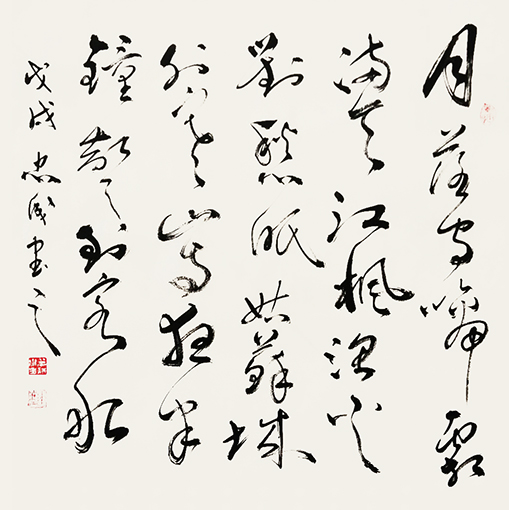 月落乌啼霜
满天江枫渔火
對愁眠姑蘇城
外寒山寺夜半
鐘聲到客船
戊戌忠誠書之